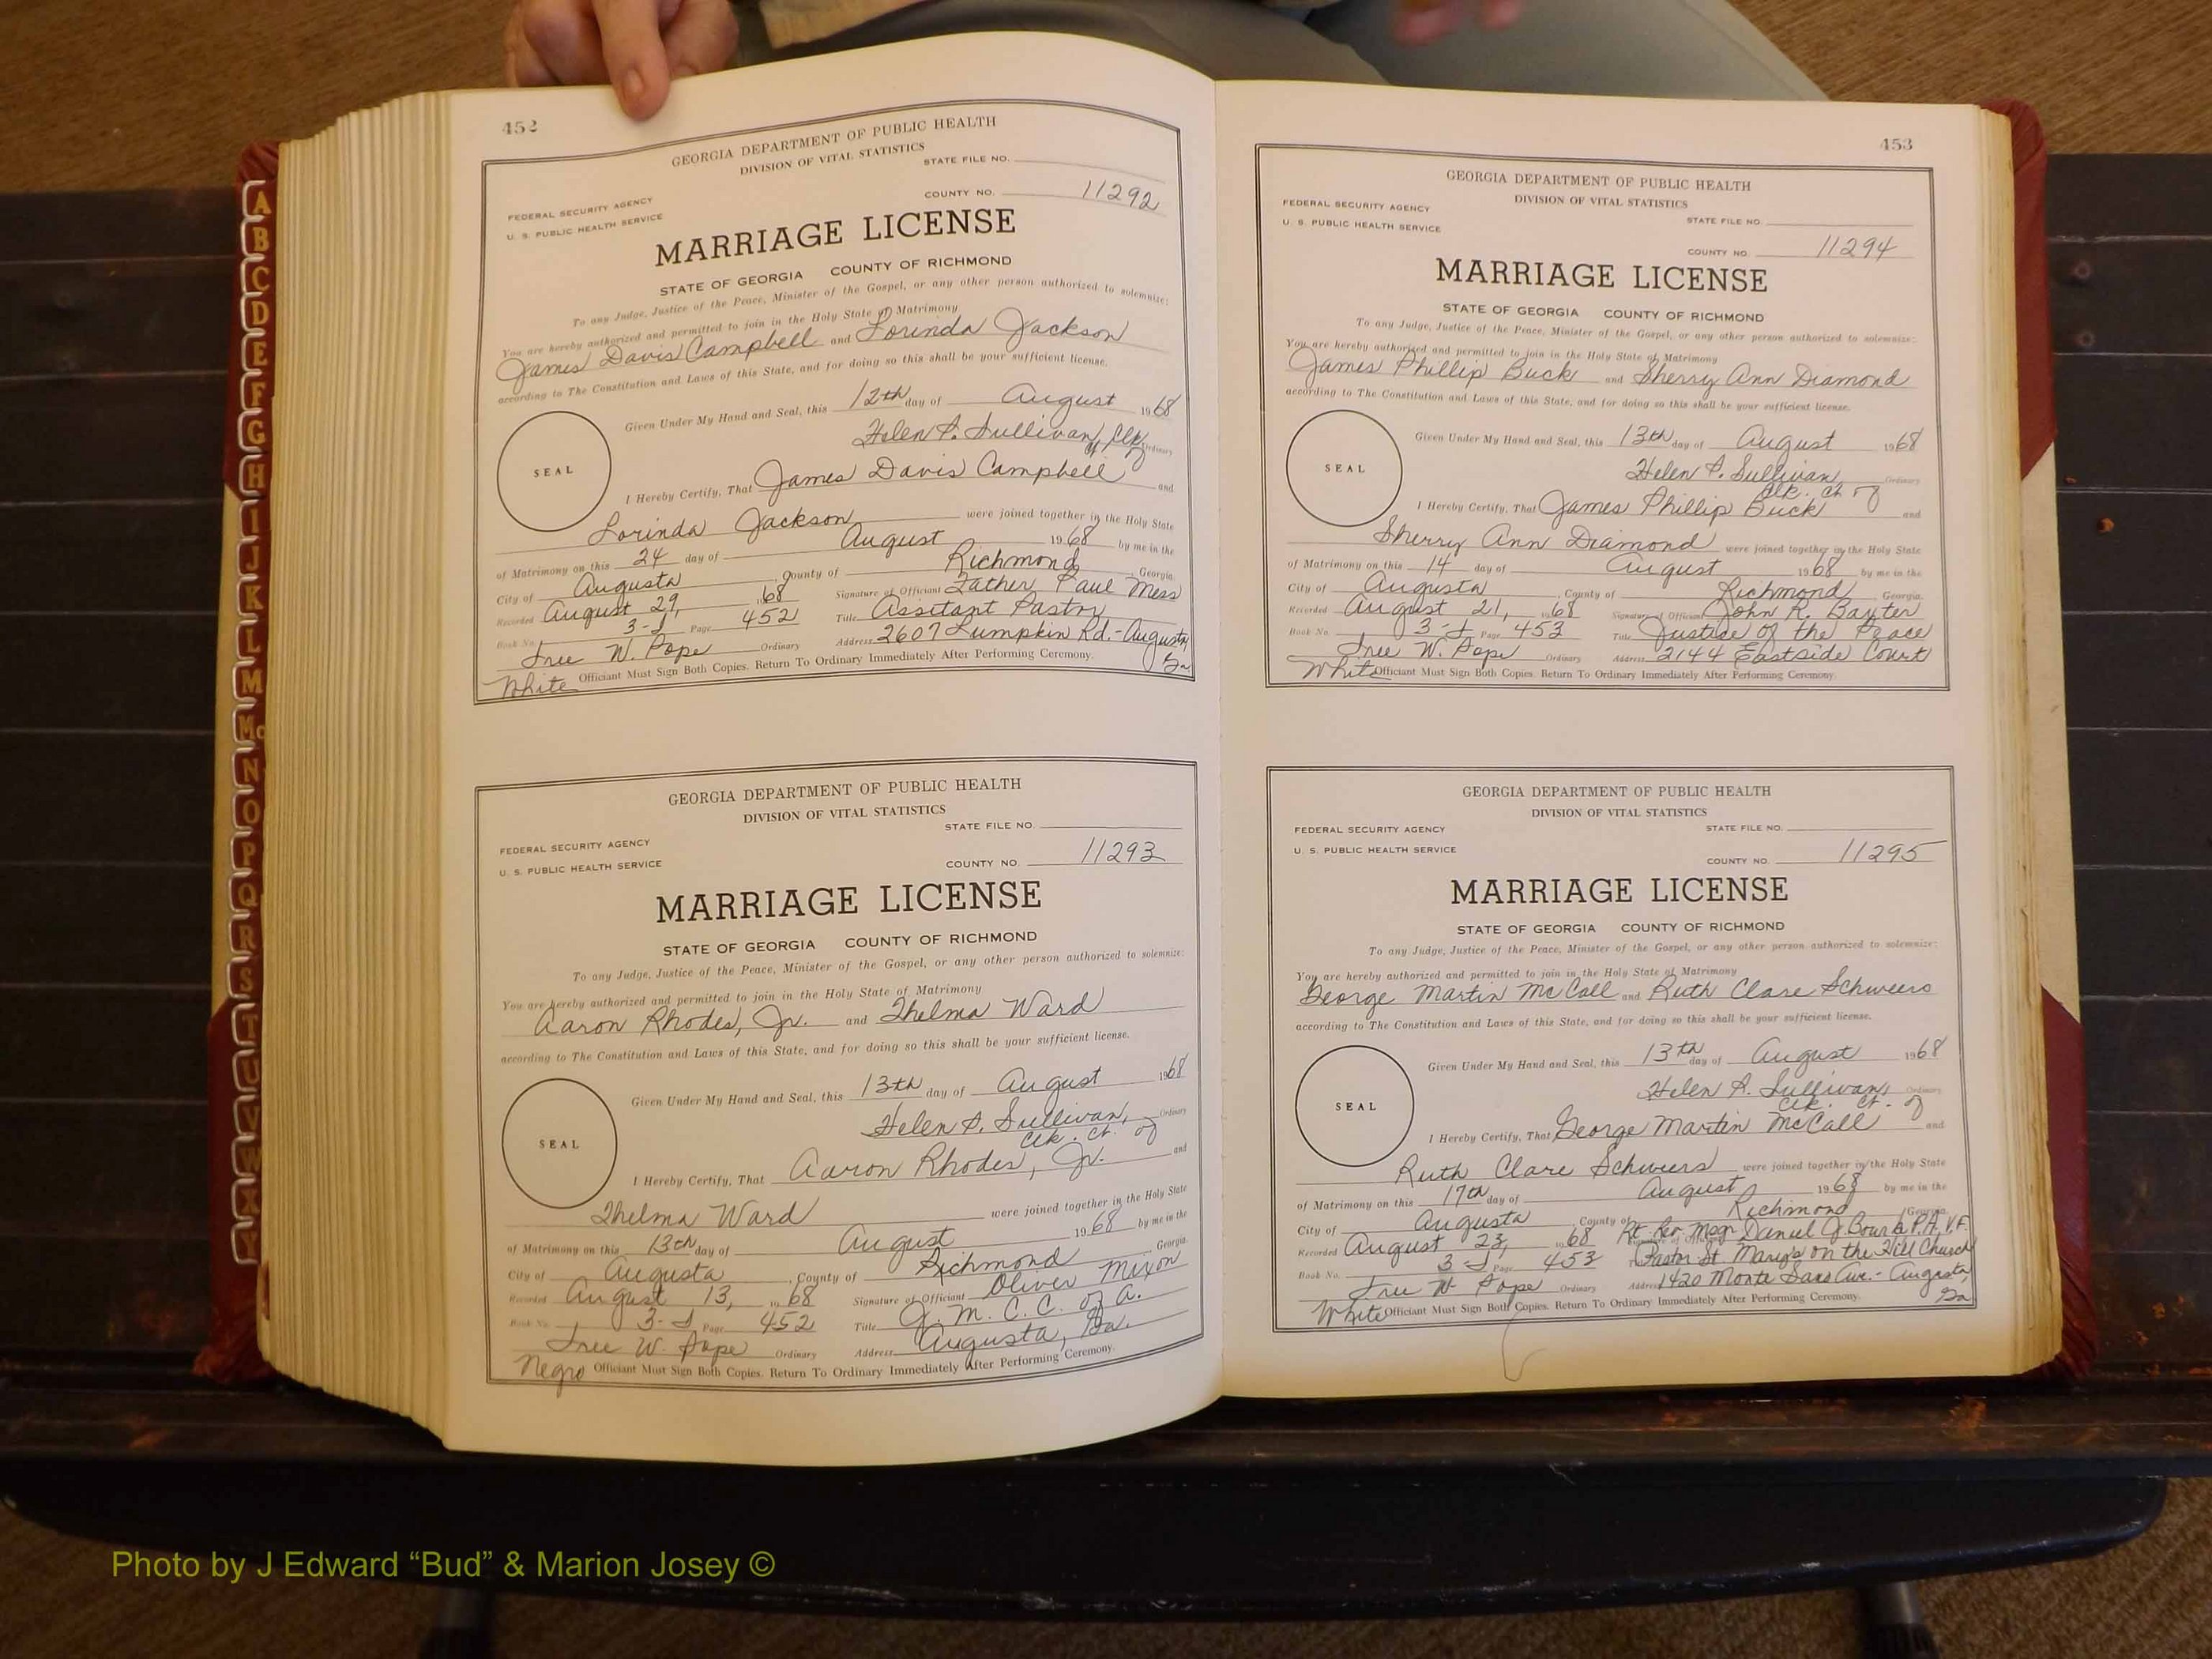 452
GEORGIA DEPARTMENT OF PUBLIC HEALTH
DIVISION OF VITAL STATISTICS
STATE FILE NO.
FEDERAL SECURITY AGENCY
U. S. PUBLIC HEALTH SERVICE
COUNTY NO. 11292
MARRIAGE LICENSE
STATE OF GEORGIA COUNTY OF RICHMOND
To any Judge, Justice of the Peace, Minister of the Gospel, or any other person authorized to solemnize:
You are hereby authorized and permitted to join in the Holy State of Matrimony
James Davis Campbell and Lorinda Jackson
according to The Constitution and Laws of this State, and for doing so this shall be your sufficient license.
Given Under My Hand and Seal, this 12th day of August 1968
Helen P. Sullivan, Clk. Ordinary
SEAL
I Hereby Certify, That James Davis Campbell and
Lorinda Jackson were joined together in the Holy State
of Matrimony on this 24 day of August 1968 by me in the
City of Augusta, County of Richmond, Georgia.
Recorded August 29, 1968 Signature of Officiant Father Paul Mess
Book No. 3-J Page 452 Title Assitant Pastor
Tree W. Pope Ordinary Address 2607 Lumpkin Rd.-Augusta
Ga
White Officiant Must Sign Both Copies. Return To Ordinary Immediately After Performing Ceremony.
GEORGIA DEPARTMENT OF PUBLIC HEALTH
DIVISION OF VITAL STATISTICS
STATE FILE NO.
FEDERAL SECURITY AGENCY
U. S. PUBLIC HEALTH SERVICE
COUNTY NO. 11293
MARRIAGE LICENSE
STATE OF GEORGIA COUNTY OF RICHMOND
To any Judge, Justice of the Peace, Minister of the Gospel, or any other person authorized to solemnize:
You are hereby authorized and permitted to join in the Holy State of Matrimony
Aaron Rhodes, Jr. and Thelma Ward
according to The Constitution and Laws of this State, and for doing so this shall be your sufficient license.
Given Under My Hand and Seal, this 13th day of August 1968
Helen P. Sullivan, Ordinary
Clk. Ct. of
SEAL
I Hereby Certify, That Aaron Rhodes, Jr. and
Thelma Ward were joined together in the Holy State
of Matrimony on this 13th day of August 1968 by me in the
City of Augusta, County of Richmond Georgia.
Recorded August 13, 1968 Signature of Officiant Oliver Mixon
Book No. 3-J Page 452 Title J. M. C. C. of A.
Tree W. Pope Ordinary Address Augusta, Ga.
Negro Officiant Must Sign Both Copies. Return To Ordinary Immediately After Performing Ceremony.
453
GEORGIA DEPARTMENT OF PUBLIC HEALTH
DIVISION OF VITAL STATISTICS
FEDERAL SECURITY AGENCY
U. S. PUBLIC HEALTH SERVICE
STATE FILE NO.
COUNTY NO. 11294
MARRIAGE LICENSE
STATE OF GEORGIA COUNTY OF RICHMOND
To any Judge, Justice of the Peace, Minister of the Gospel, or any other person authorized to solemnize:
You are hereby authorized and permitted to join in the Holy State of Matrimony
James Phillip Buck and Sherry Ann Diamond
according to The Constitution and Laws of this State, and for doing so this shall be your sufficient license.
Given Under My Hand and Seal, this 13th day of August 1968
Helen P. Sullivan, Ordinary
Clk. Ct. of
SEAL
I Hereby Certify, That James Phillip Buck and
Sherry Ann Diamond were joined together in the Holy State
of Matrimony on this 14 day of August 1968 by me in the
City of Augusta, County of Richmond, Georgia.
Recorded August 21, 1968 Signature of Officiant John R. Baxter
Book No. 3-J Page 453 Title Justice of the Peace
Tree W. Pope Ordinary Address 2144 Eastside Court
White Officiant Must Sign Both Copies. Return To Ordinary Immediately After Performing Ceremony.
GEORGIA DEPARTMENT OF PUBLIC HEALTH
DIVISION OF VITAL STATISTICS
FEDERAL SECURITY AGENCY
U. S. PUBLIC HEALTH SERVICE
STATE FILE NO.
COUNTY NO. 11295
MARRIAGE LICENSE
STATE OF GEORGIA COUNTY OF RICHMOND
To any Judge, Justice of the Peace, Minister of the Gospel, or any other person authorized to solemnize:
You are hereby authorized and permitted to join in the Holy State of Matrimony
George Martin McCall and Ruth Clare Schweers
according to The Constitution and Laws of this State, and for doing so this shall be your sufficient license.
Given Under My Hand and Seal, this 13th day of August 1968
Helen P. Sullivan, Ordinary
Clk. Ct. of
SEAL
I Hereby Certify, That George Martin McCall and
Ruth Clare Schweers were joined together in the Holy State
of Matrimony on this 17th day of August 1968 by me in the
City of Augusta, County of Richmond, Georgia.
Recorded August 23, 1968 Rt. Rev. Msgr. Daniel J. Bourke P.A., V.F.
Book No. 3-J Page 453 Pastor St. Mary's on the Hill Church
Tree W. Pope Ordinary Address 1420 Monte Sano Ave.-Augusta,
Ga
White Officiant Must Sign Both Copies. Return To Ordinary Immediately After Performing Ceremony.
A
B
C
D
E
F
G
H
I
J
K
L
M
Mc
N
O
P
Q
R
S
T
U
V
W
X
Y
Photo by J Edward “Bud” & Marion Josey ©